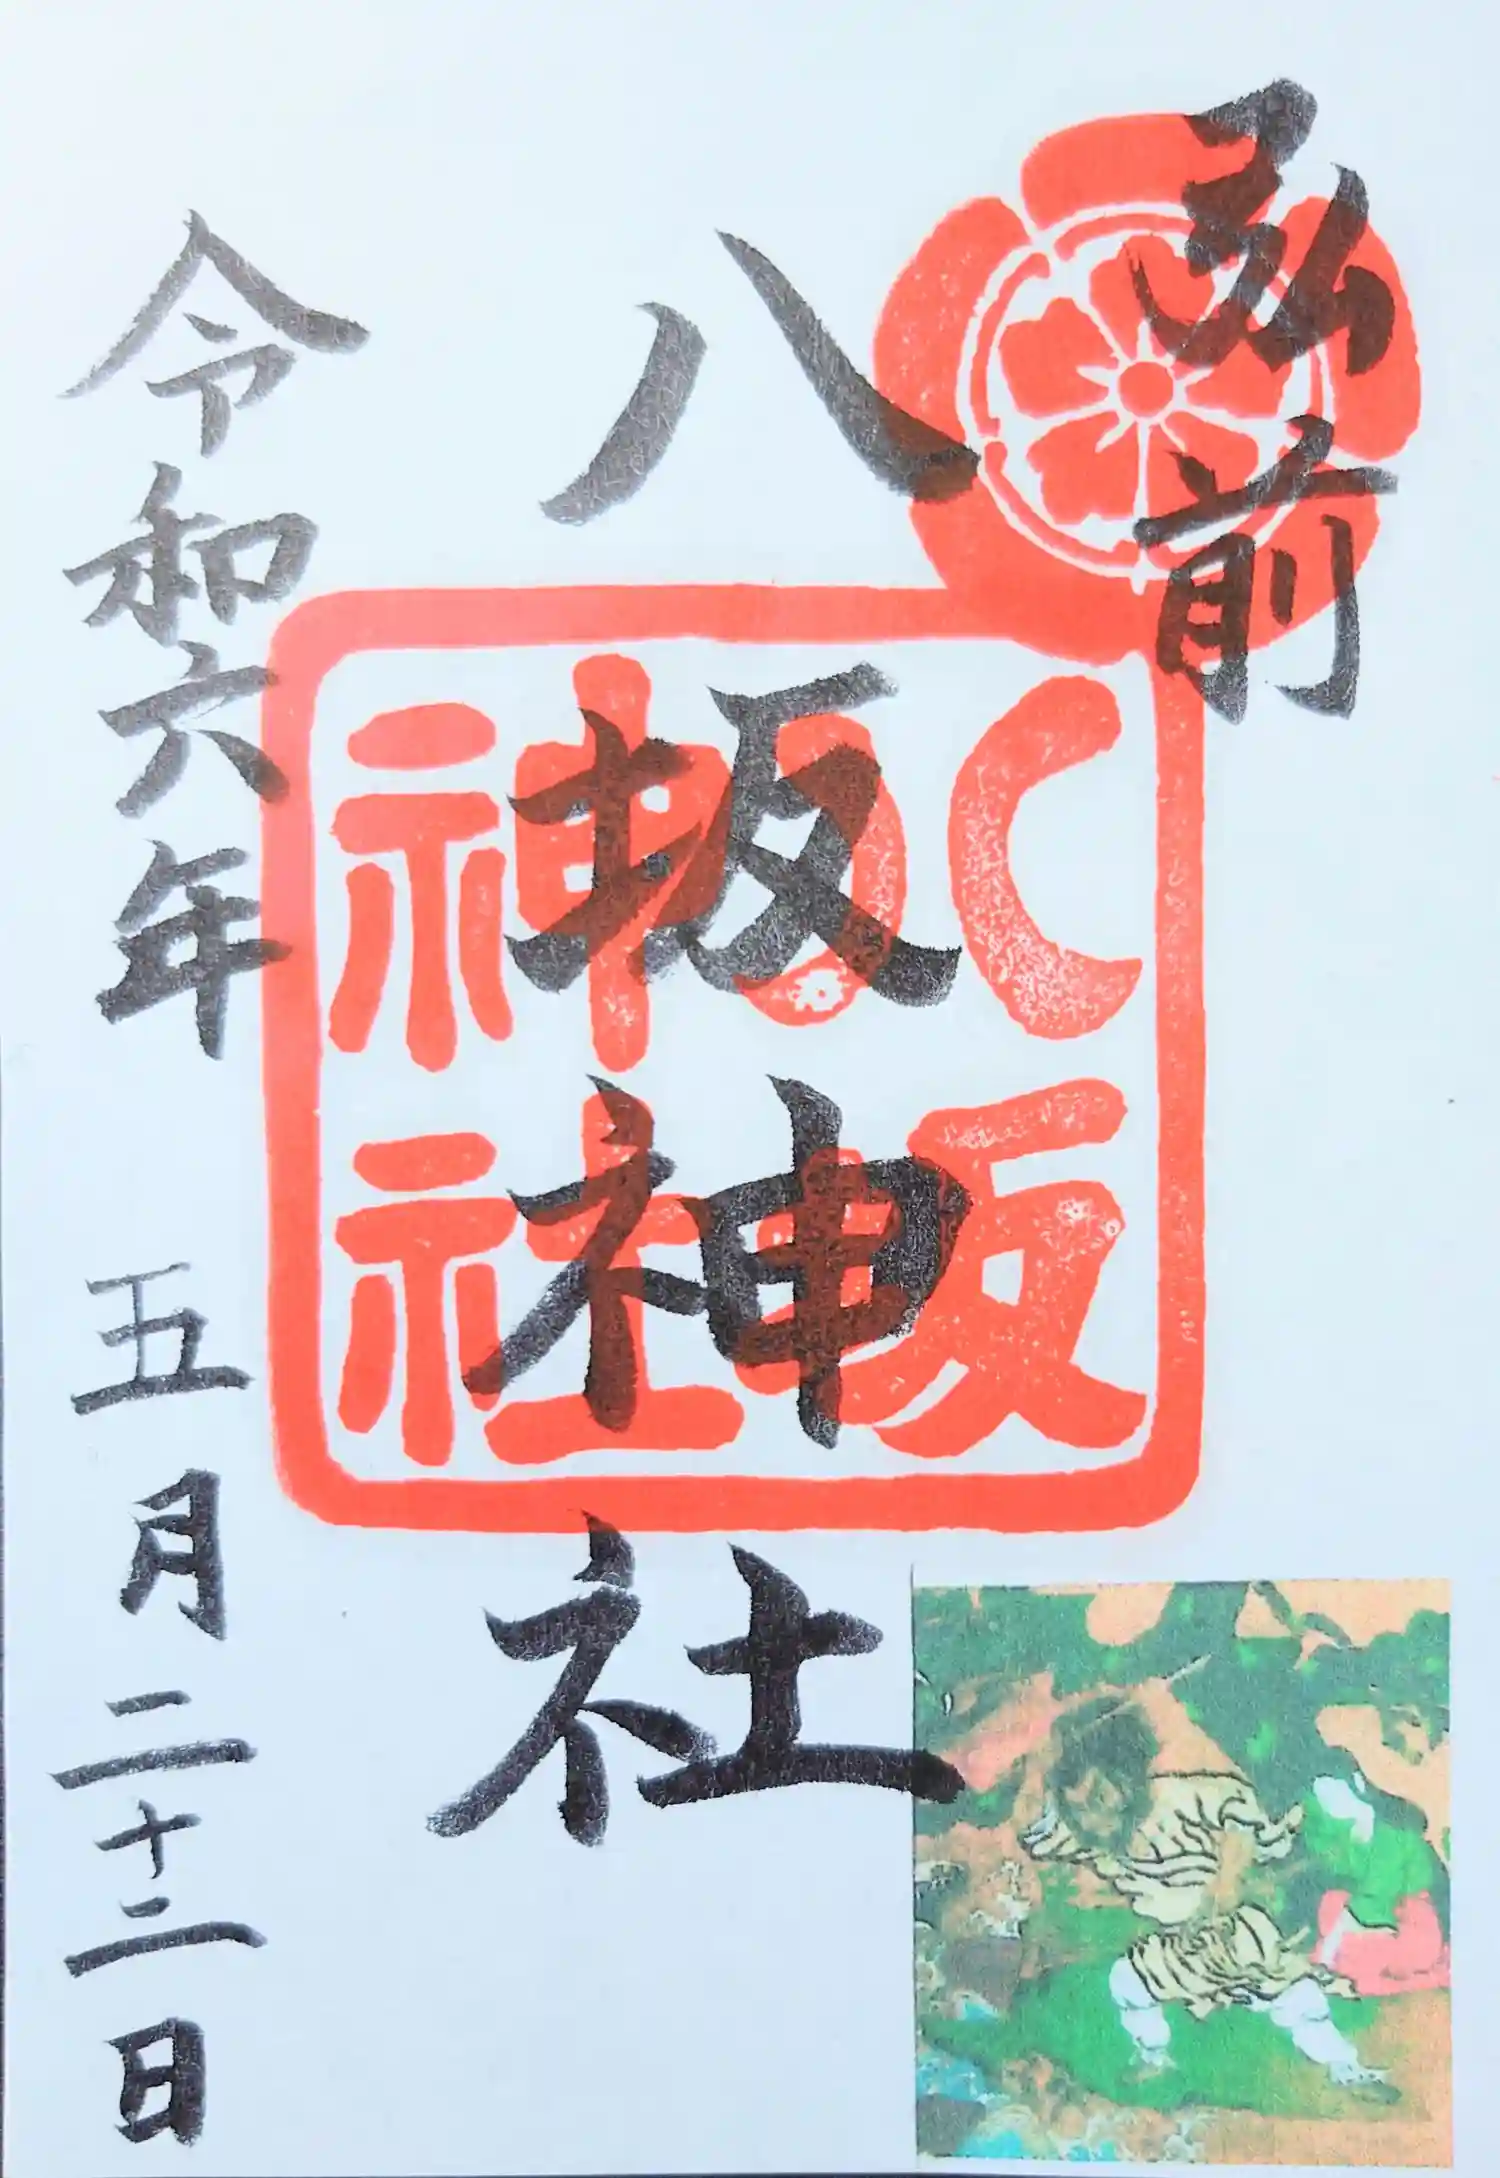 弘前
八坂神社
令和六年 五月二十二日
八坂
神社